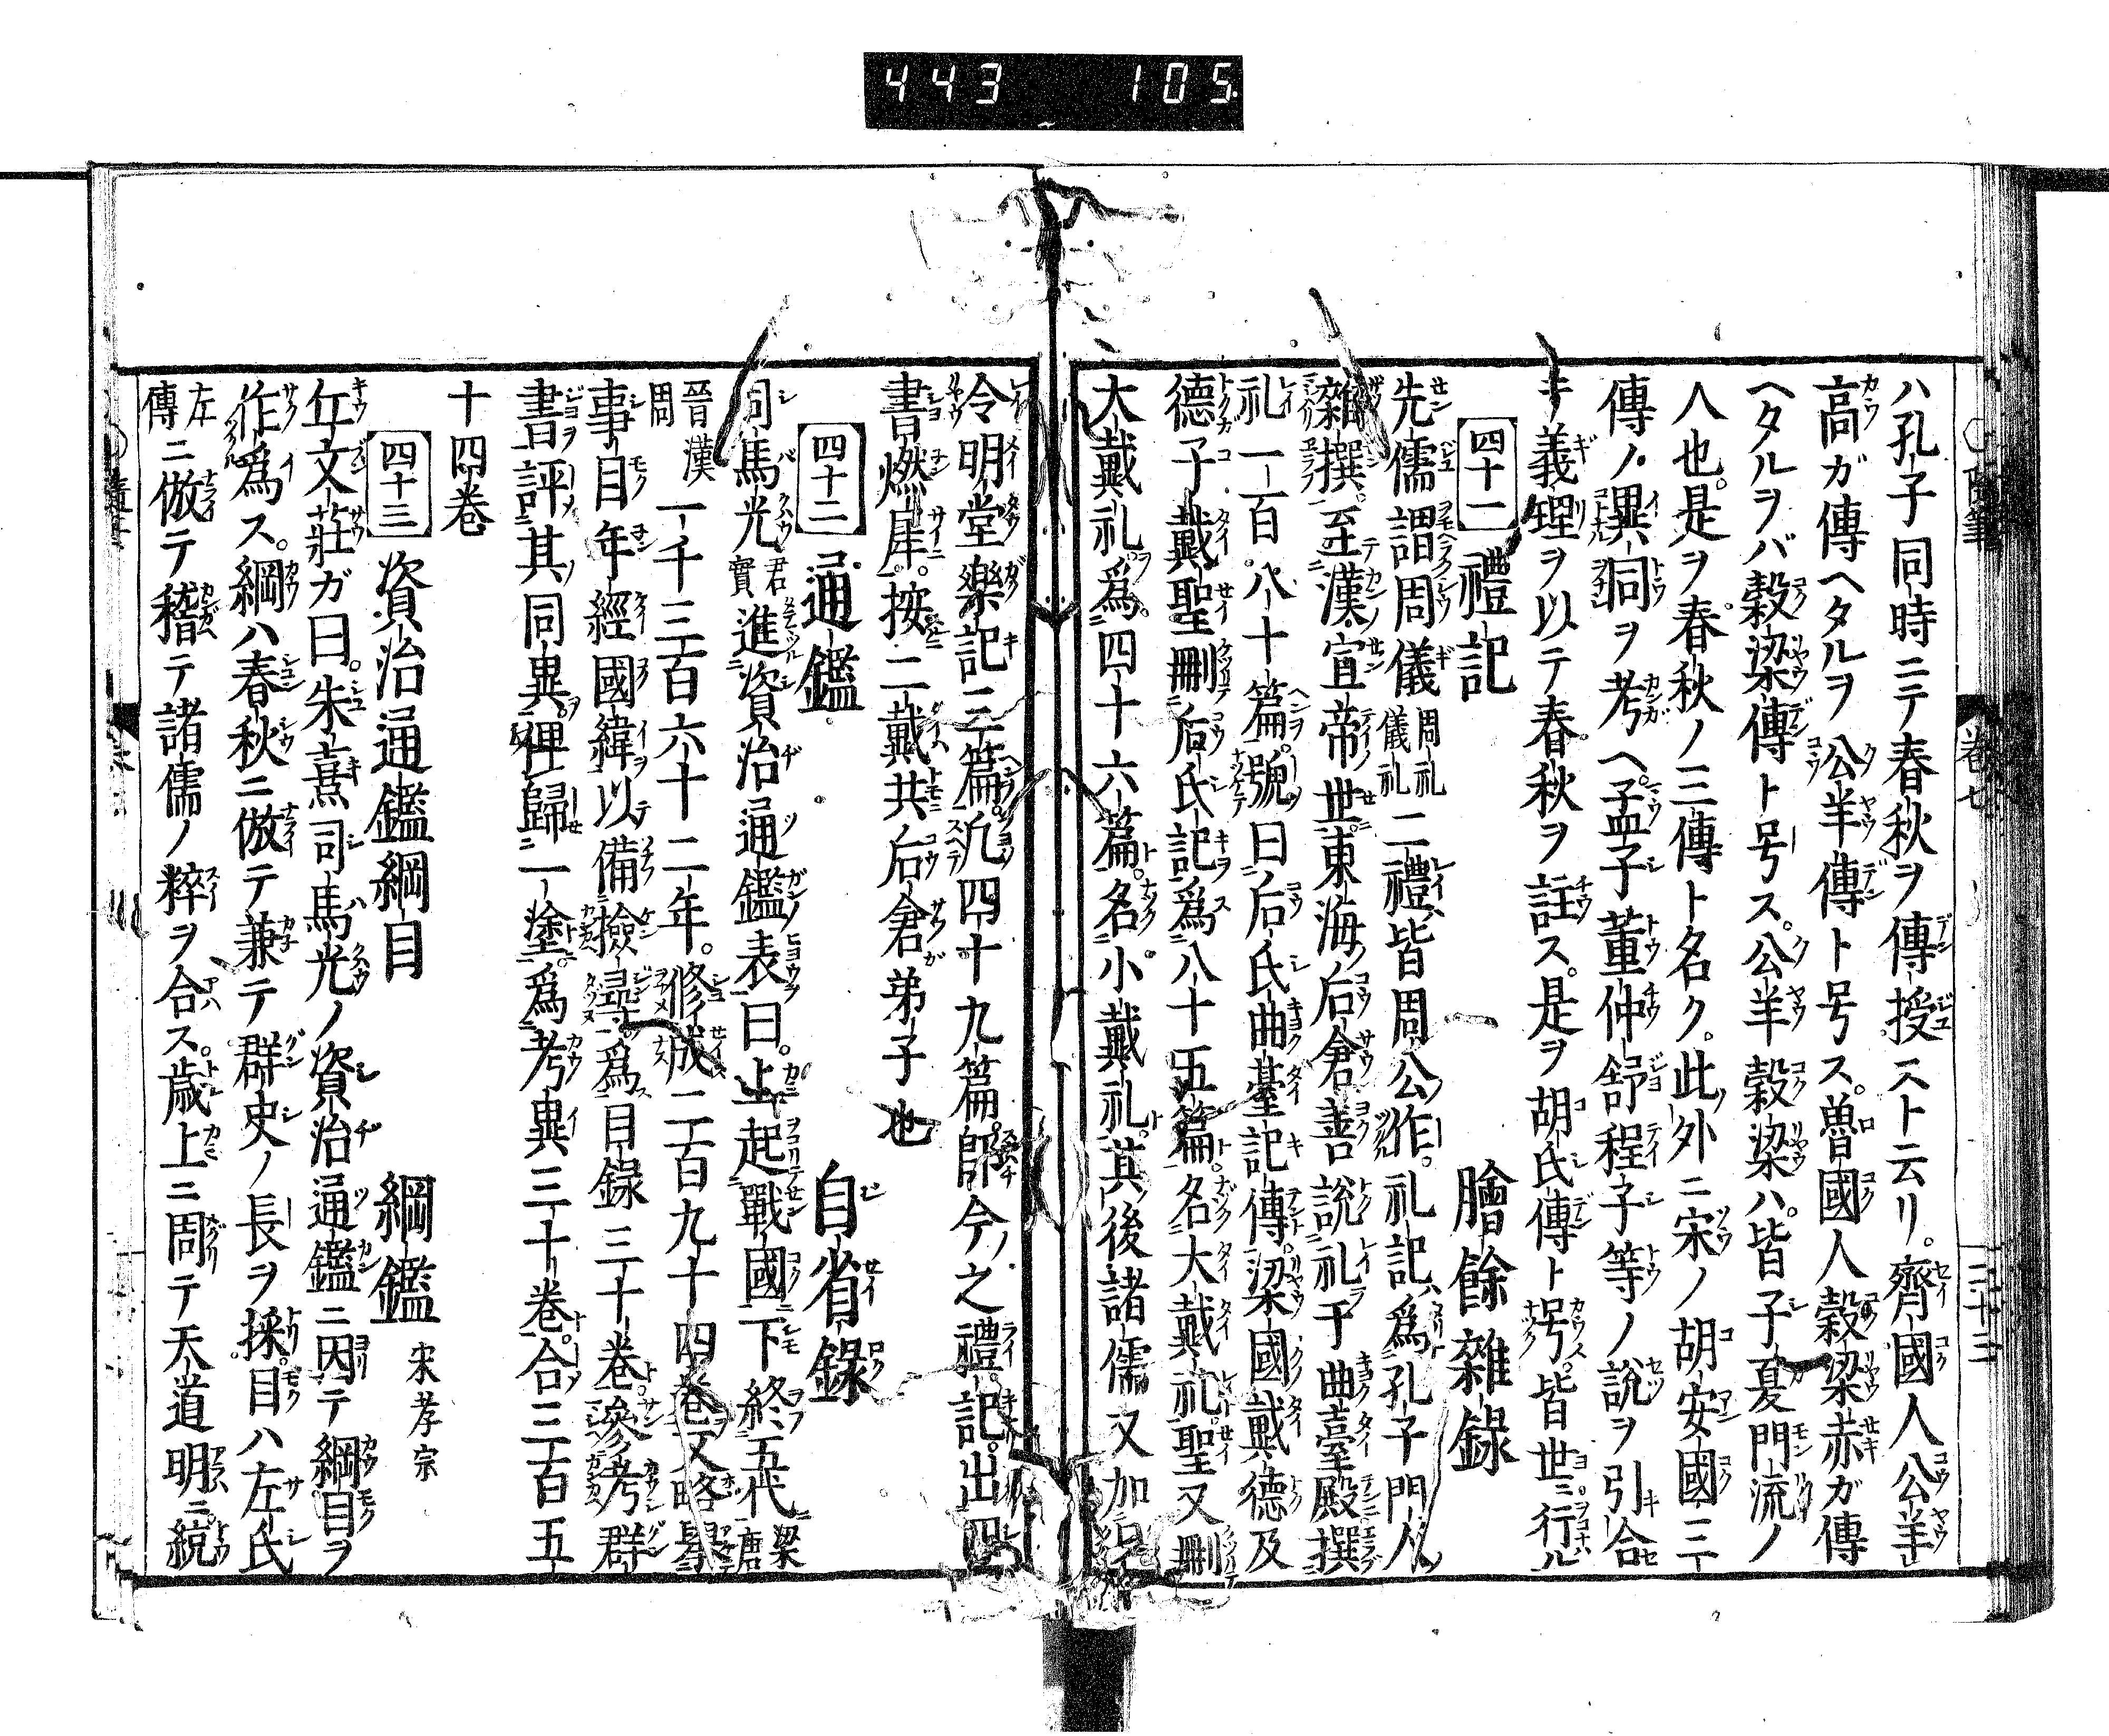 443 105
ハ孔子同時ニテ春秋ヲ傳授スト云リ。齊國人公羊
高ガ傳ヘタルヲ公羊傳ト号ス。魯國人穀梁赤ガ傳
ヘタルヲバ穀梁傳ト号ス。公羊穀梁ハ皆子夏門流ノ
人也。是ヲ春秋ノ三傳ト名ク。此外ニ宋ノ胡安國三
傳ノ異同ヲ考ヘ。孟子董仲舒程子等ノ說ヲ引合
キ義理ヲ以テ春秋ヲ註ス。是ヲ胡氏傳ト号。皆世ニ行ル
四十一 禮記 膾餘雜錄
先儒謂周儀周礼儀礼二禮皆周公作。礼記爲孔子門人
雜撰。至漢宣帝世東海后倉善說礼于曲臺殿撰
礼一百八十篇。號曰后氏曲臺記傳。梁國戴德及
德子戴聖刪后氏記爲八十五篇。名大戴礼。聖又刪
大戴礼爲四十六篇。名小戴礼。其後諸儒又加
令明堂樂記三篇。凡四十九篇。卽今之禮記。出四
書燃犀。按二戴共后倉弟子也
四十二 通鑑 自省録
司馬光君實進資治通鑑表曰。上起戰國下終五代梁唐
晉漢周一千三百六十二年。修成二百九十四巻又略擧
事目年經國緯以備撿尋爲目録三十巻。參考群
書評其同異俾歸一塗。爲考異三十巻。合三百五
十四巻
四十三 資治通鑑綱目 綱鑑 宋孝宗
丘文莊ガ曰。朱熹司馬光ノ資治通鑑ニ因テ綱目ヲ
作爲ス。綱ハ春秋ニ倣テ兼テ群史ノ長ヲ採。目ハ左氏
左傳ニ倣テ稽テ諸儒ノ粹ヲ合ス。歲上ニ周テ天道明ニ統